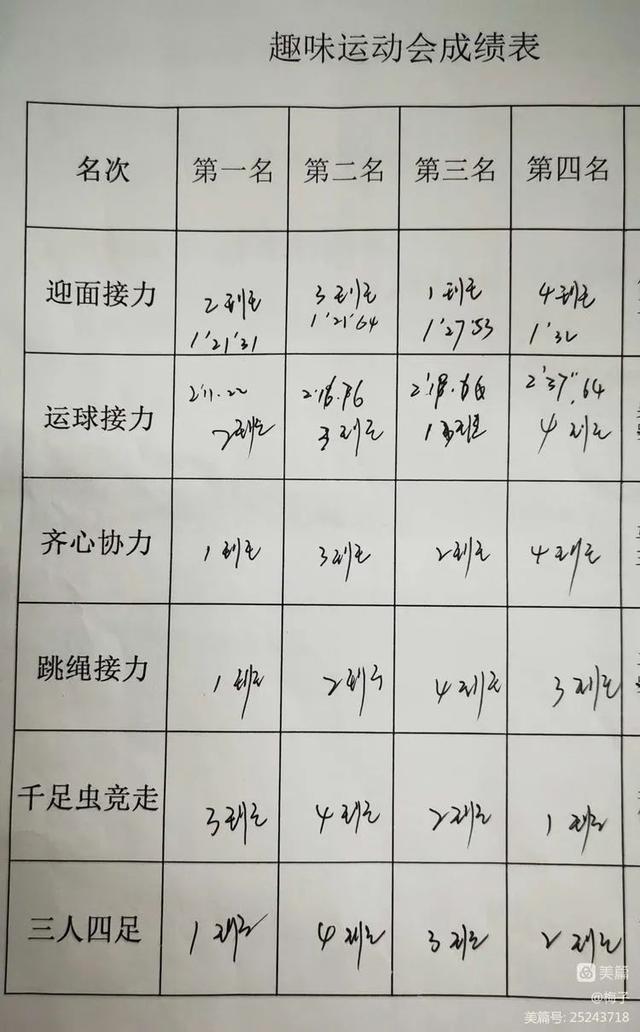 趣味运动会成绩表
名次 第一名 第二名 第三名 第四名
迎面接力 2班 3班 1班 4班
1'21'31 1'21'64 1'27'53 1'32
2'11.22 2'37".64
运球接力 2班 3班 1班 4班
齐心协力 1班 3班 2班 4班
跳绳接力 1班 2班 4班 3班
千足虫竞走 3班 4班 2班 1班
三人四足 1班 4班 3班 2班
美篇
@梅子
美篇号: 25243718